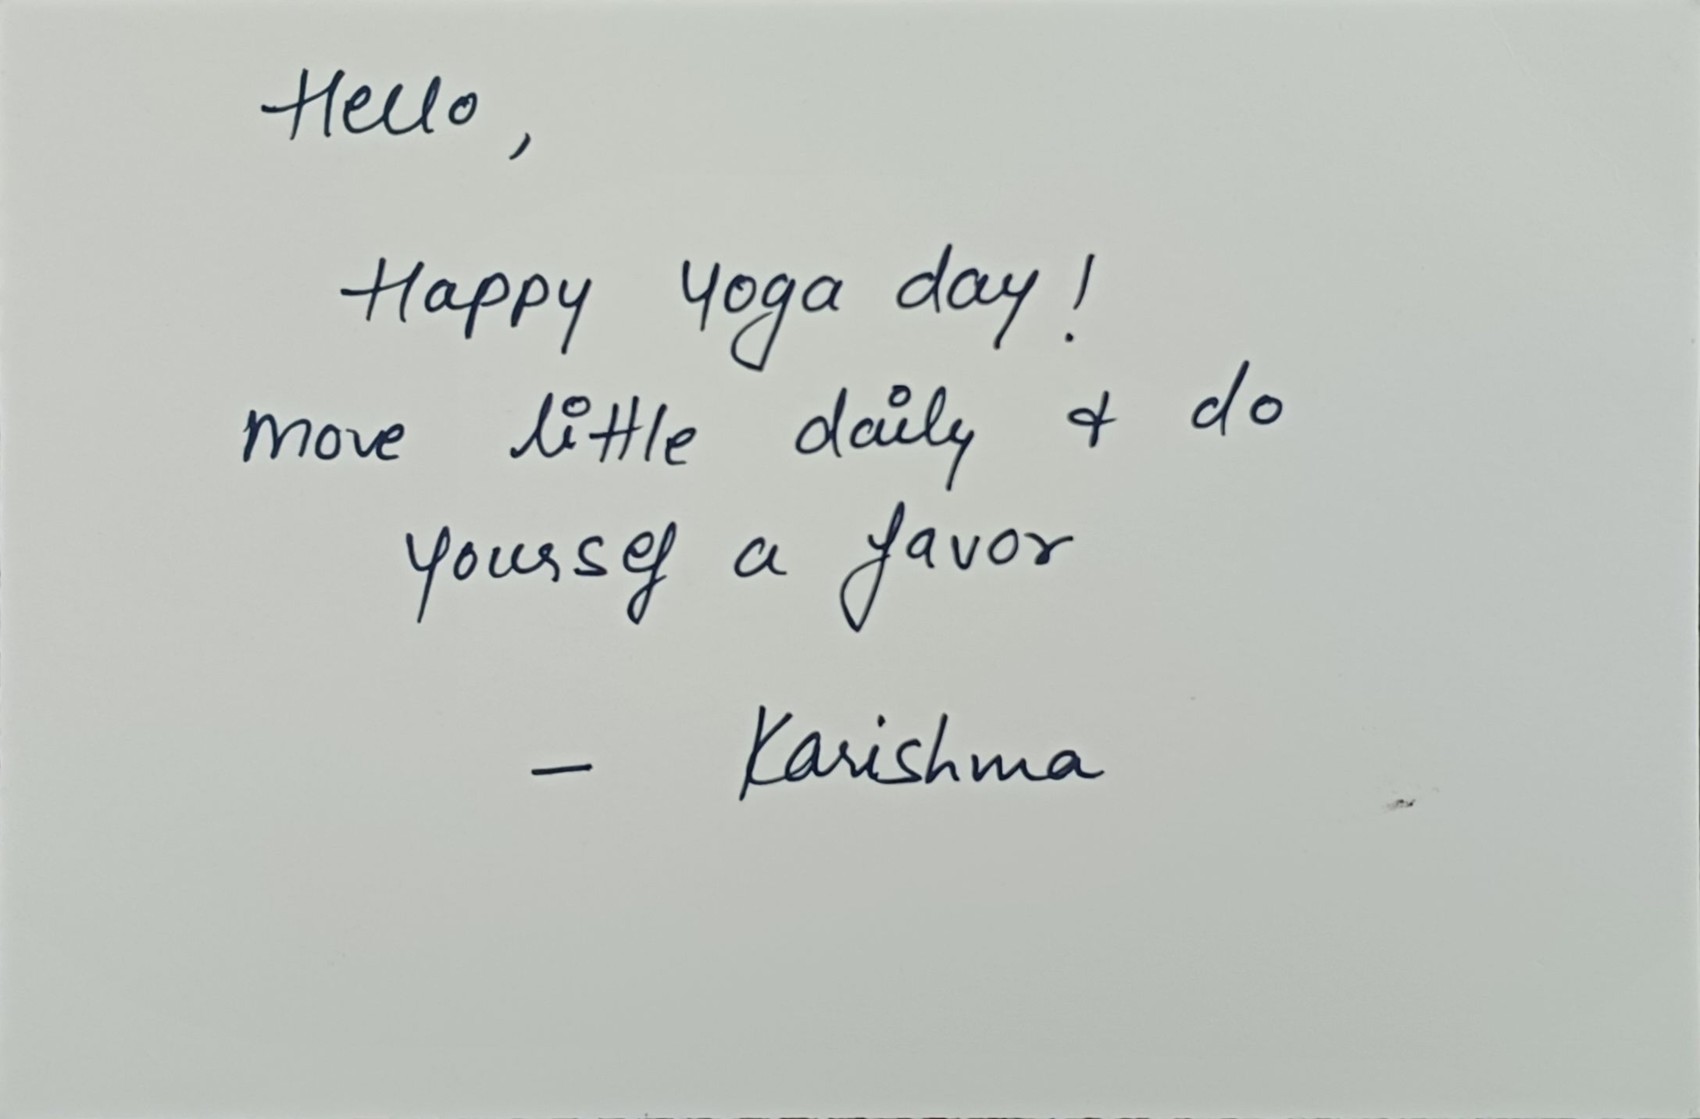 Hello,
Happy yoga day!
move little daily & do
yoursef a favor
- Karishma